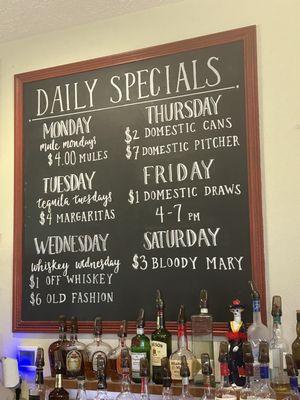 DAILY SPECIALS
MONDAY
mule mondays
$4.00 MULES
TUESDAY
tequila tuesdays
$4 MARGARITAS
WEDNESDAY
whiskey wednesday
$1 OFF WHISKEY
$6 OLD FASHION
THURSDAY
$2 DOMESTIC CANS
$7 DOMESTIC PITCHER
FRIDAY
$1 DOMESTIC DRAWS
4-7 PM
SATURDAY
$3 BLOODY MARY